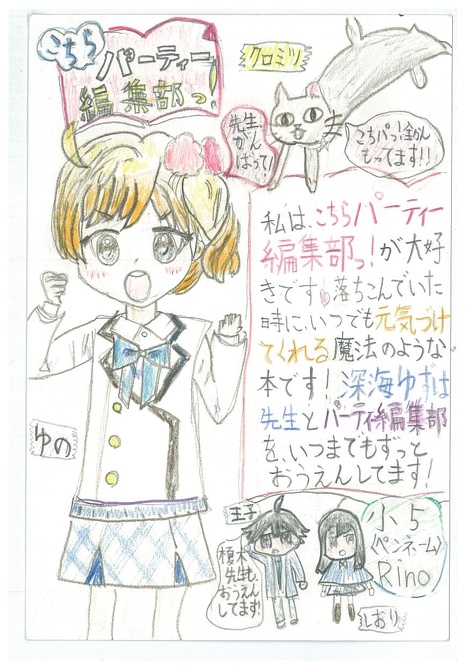 こちら
パーティー
編集部っ!
クロミツ
先生、
がん
ばって!
こちパっ!金かん
もってます!!
私は、こちらパーティー
編集部っ!が大好
きです 落ちこんでいた
時に、いつでも元気づけ
てくれる魔法のような
本です! 深海ゆずは
先生とパーティー編集部
を、いつまでもずっと
おうえんしてます!
ゆの
王子
榎木
先生も、
おうえん
してます!
しおり
小5
〈ペンネーム〉
Rino